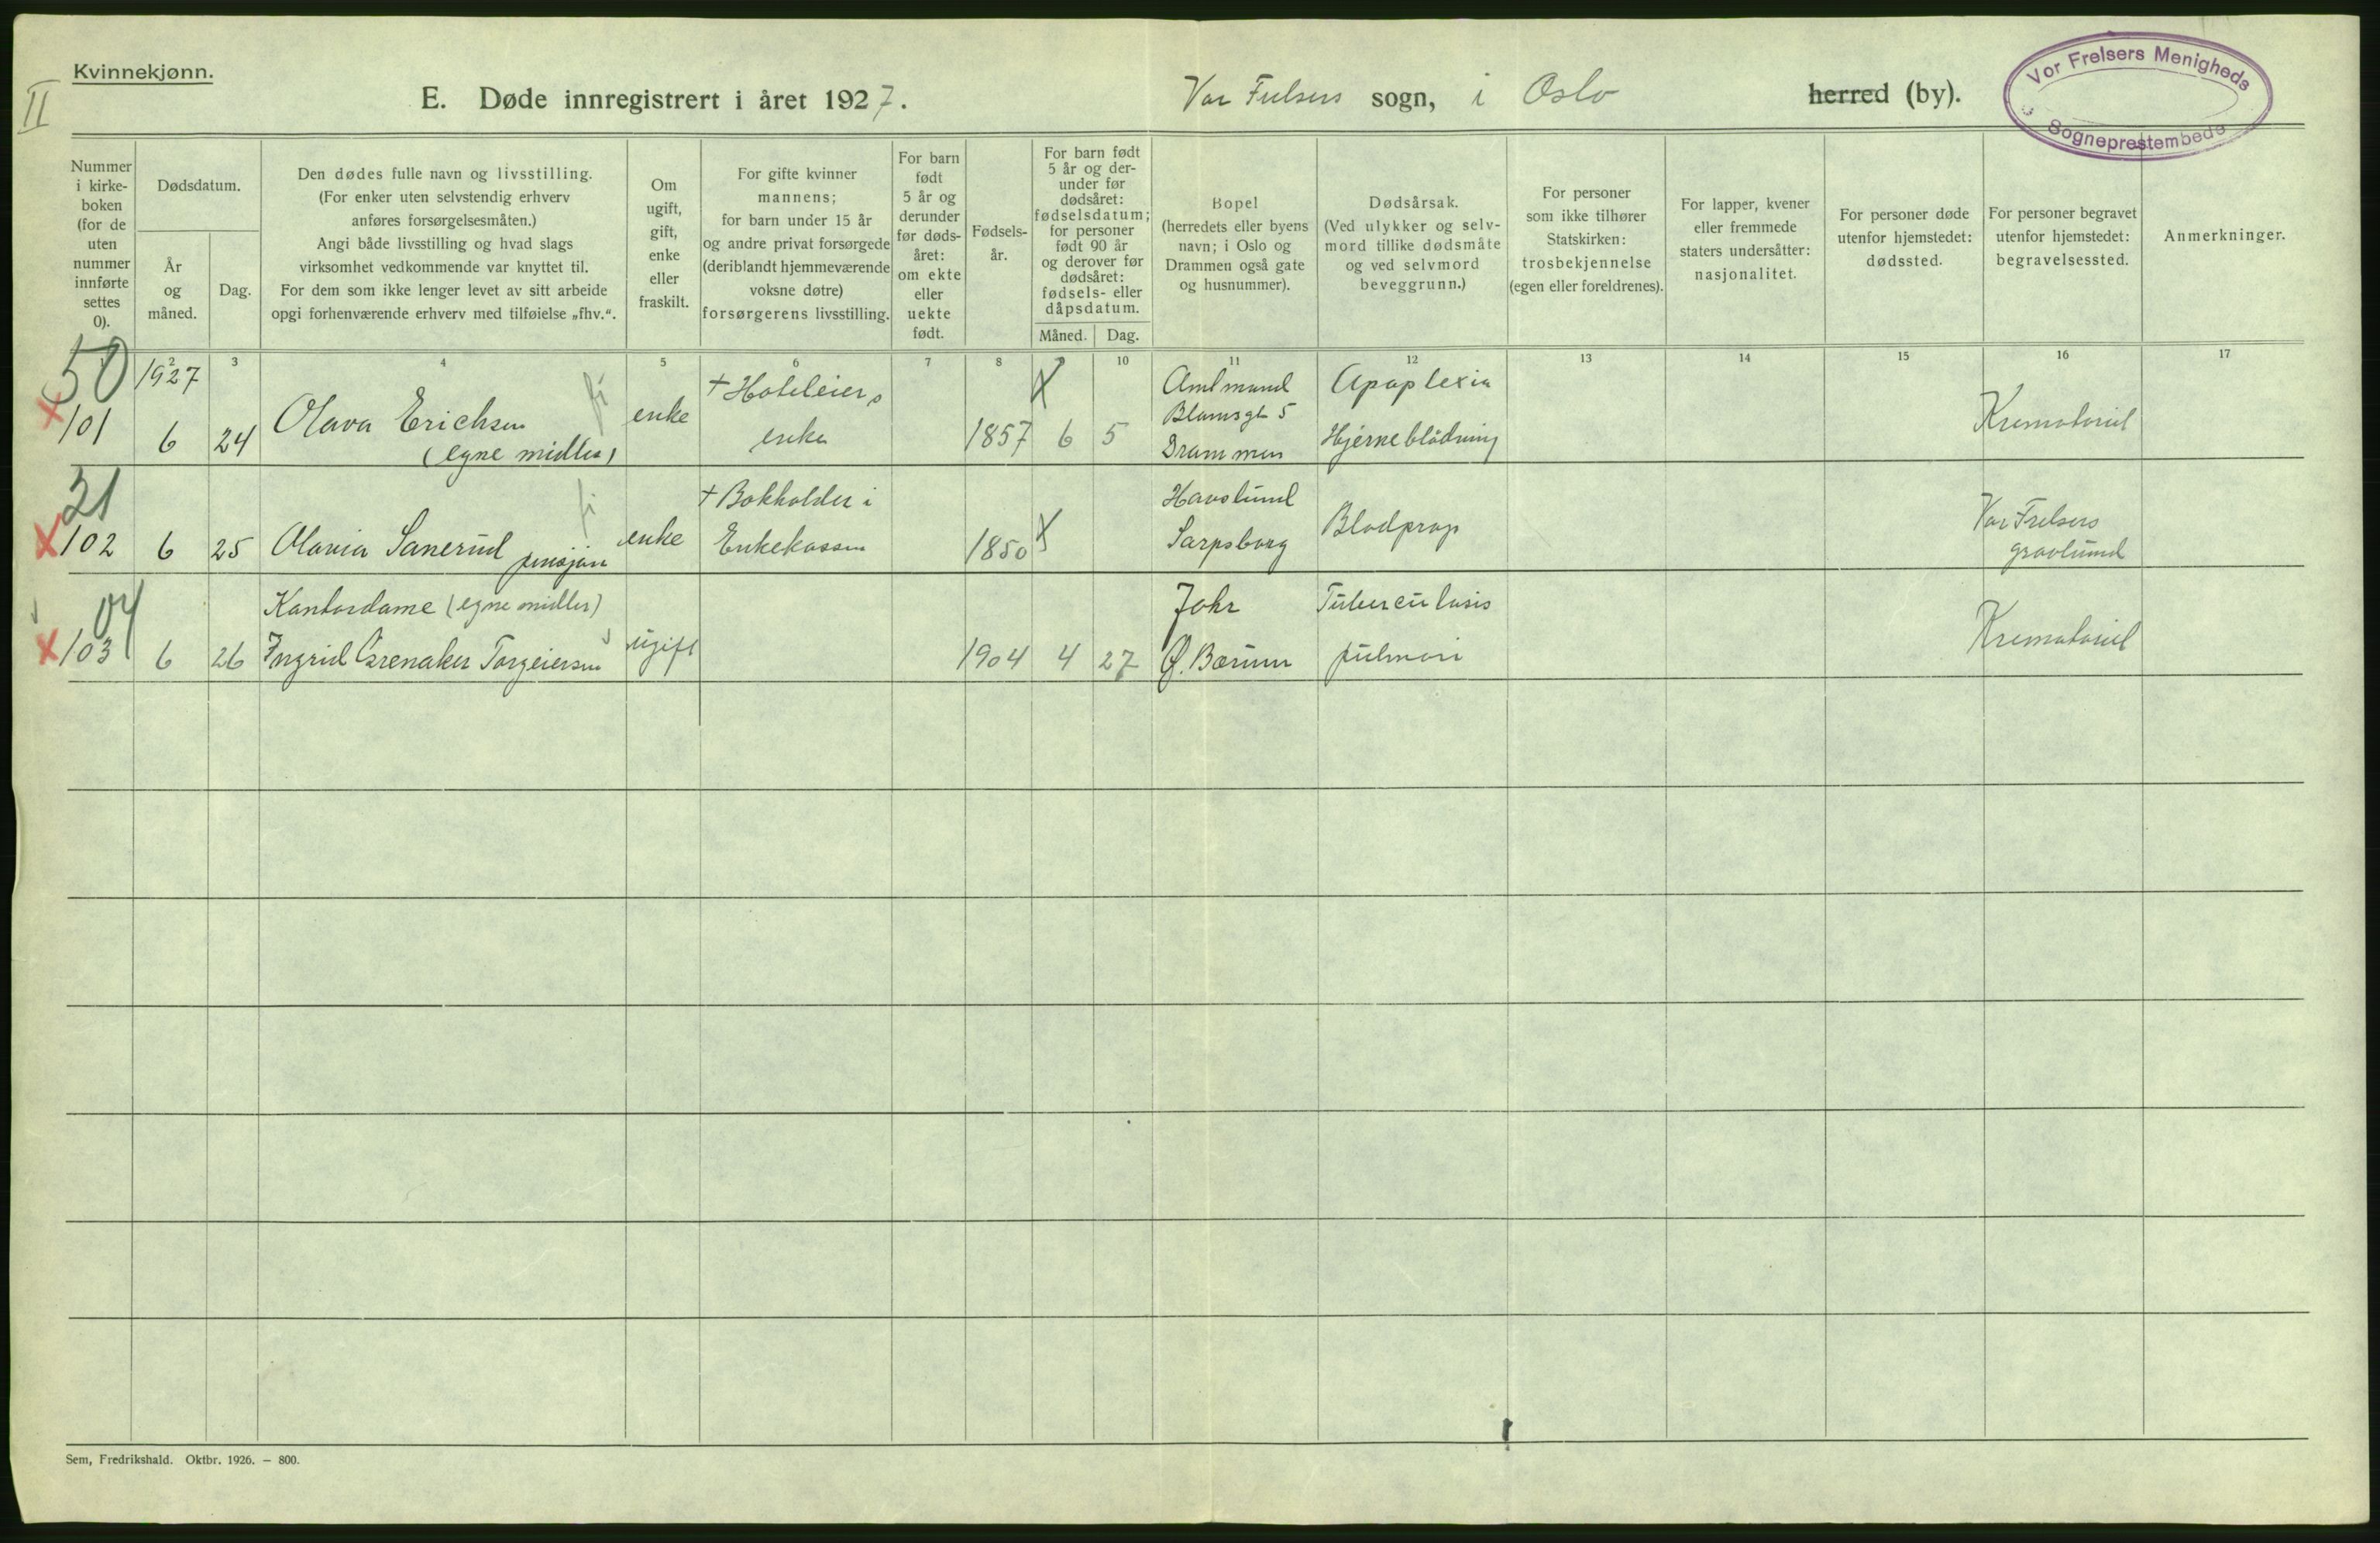 Kvinnekjønn.
II
E. Døde innregistrert i året 1927.
Vor Frelsers sogn, i Oslo herred (by).
Vor Frelsers Menigheds
Sogneprestembede
Nummer i kirke- boken (for de uten nummer innførte settes 0).
Dødsdatum.
År og måned.
Dag.
Den dødes fulle navn og livsstilling.
(For enker uten selvstendig erhverv
anføres forsørgelsesmåten.)
Angi både livsstilling og hvad slags
virksomhet vedkommende var knyttet til.
For dem som ikke lenger levet av sitt arbeide
opgi forhenværende erhverv med tilføielse „fhv.“.
Om ugift, gift, enke eller fraskilt.
For gifte kvinner
mannens;
for barn under 15 år
og andre privat forsørgede
(deriblandt hjemmeværende
voksne døtre)
forsørgerens livsstilling.
For barn født 5 år og derunder før døds- året: om ekte eller uekte født.
Fødsels- år.
For barn født
5 år og der-
under før
dødsåret:
fødselsdatum;
for personer
født 90 år
og derover før
dødsåret:
fødsels- eller
dåpsdatum.
Måned. Dag.
Bopel
(herredets eller byens
navn; i Oslo og
Drammen også gate
og husnummer).
Dødsårsak.
(Ved ulykker og selv-
mord tillike dødsmåte
og ved selvmord
beveggrunn.)
For personer
som ikke tilhører
Statskirken:
trosbekjennelse
(egen eller foreldrenes).
For lapper, kvener
eller fremmede
staters undersåtter:
nasjonalitet.
For personer døde
utenfor hjemstedet:
dødssted.
For personer begravet
utenfor hjemstedet:
begravelsessted.
Anmerkninger.
2 3 4 5 6 7 8 10 11 12 13 14 15 16 17
50
1927
x 101 6 24
Olava Erichsen
(egne midler)
enke
+ Hoteleiers
enke
1857 6 5
Amtmand
Blomsgt 5
Drammen
Apoplexia
Hjerneblödning
Krematoriet
21
x 102 6 25
Olavia Sanerud pensjon
enke
+ Bokholder i
Enkekassen
1850
Havslund
Sarpsborg
Blodprop
Vor Frelsers
gravlund
04
x 103 6 26
Kontordame (egne midler)
Ingrid Grenaker Torgeiersen
ugift
1904 4 27
Johr
Ø. Bærum
Tuberculosis
pulmon
Krematoriet
Sem, Fredrikshald. Oktbr. 1926. — 800.